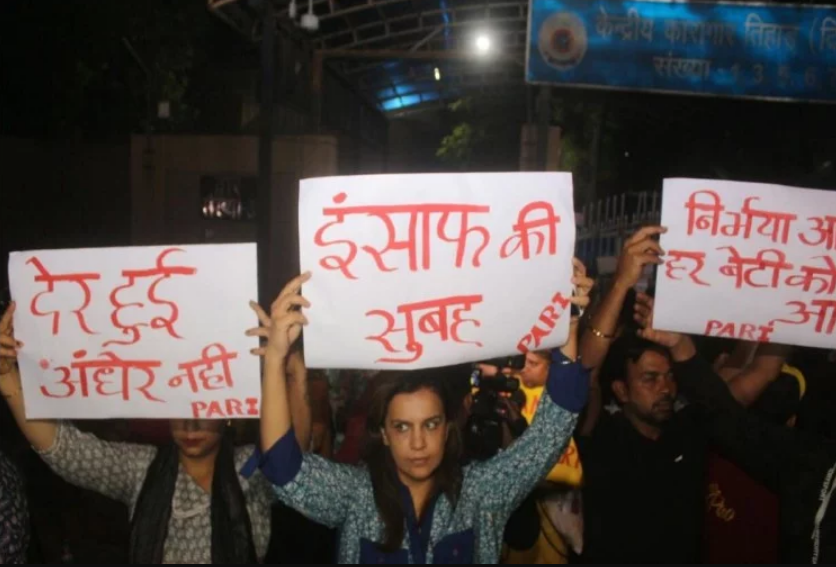 केन्द्रीय कारागार तिहाड़
संख्या - 1 3 5 6
देर हुई
अंधेर नही
PARI
इंसाफ की
सुबह
PARI
निर्भया
हर बेटी को
PARI